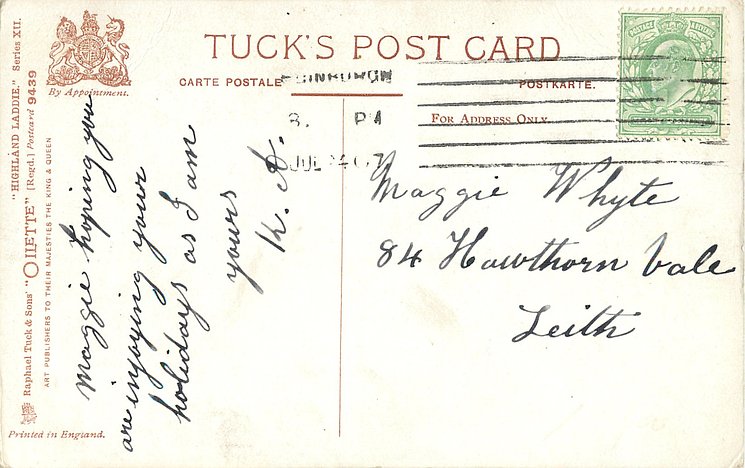 TUCK'S POST CARD
CARTE POSTALE
POSTKARTE.
By Appointment.
FOR ADDRESS ONLY.
EDINBURGH
PM
JUL 07
"HIGHLAND LADDIE." Series XII.
Raphael Tuck & Sons' "OILETTE" [Regd.] Postcard 9439
ART PUBLISHERS TO THEIR MAJESTIES THE KING & QUEEN
Printed in England.
Maggie hoping you
are injoying your
holidays as I am
yours
Maggie Whyte
84 Hawthorn Vale
Leith